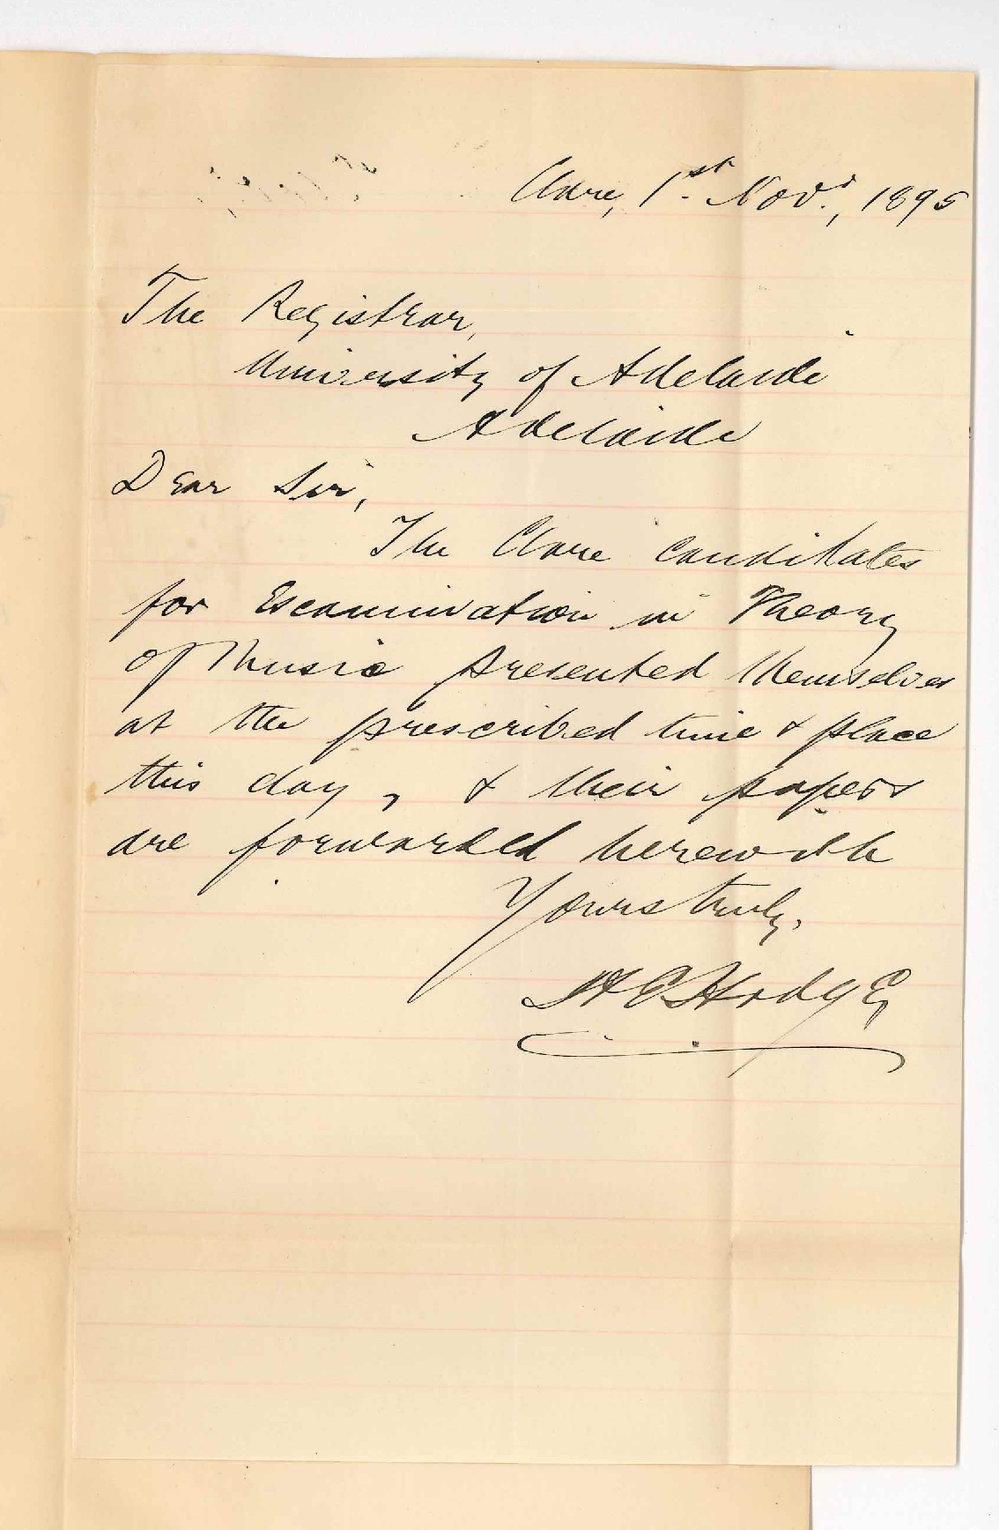 Clare, 1st. Novr., 1895
The Registrar,
University of Adelaide
Adelaide
Dear Sir,
The Clare candidates
for Examination in Theory
of Music presented themselves
at the prescribed time & place
this day, & their papers
are forwarded herewith
Yours truly,
Hodge